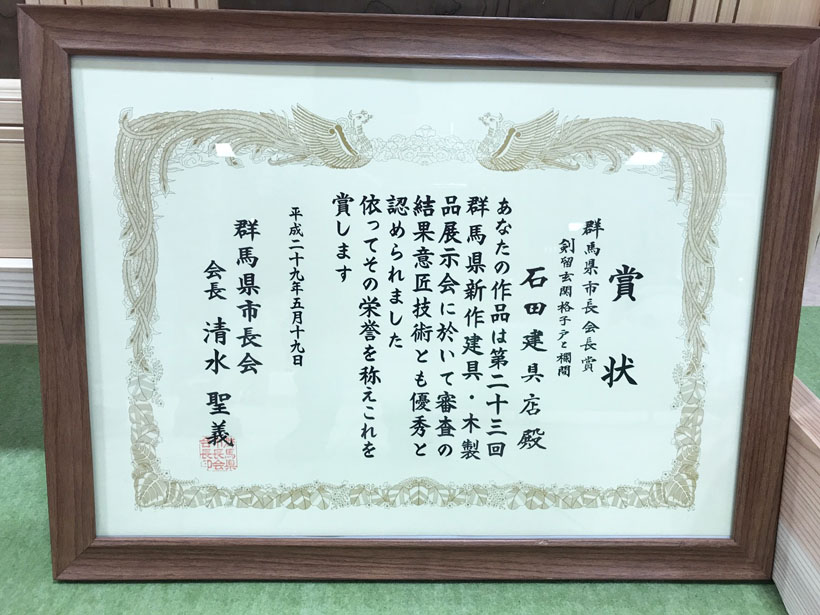 賞状
群馬県市長会長賞
剣留玄関格子戸と欄間
石田建具店殿
あなたの作品は第二十三回
群馬県新作建具・木製
品展示会に於いて審査の
結果意匠技術とも優秀と
認められました
依ってその栄誉を称えこれを
賞します
平成二十九年五月十九日
群馬県市長会
会長 清水聖義
群馬県
市長会
会長印